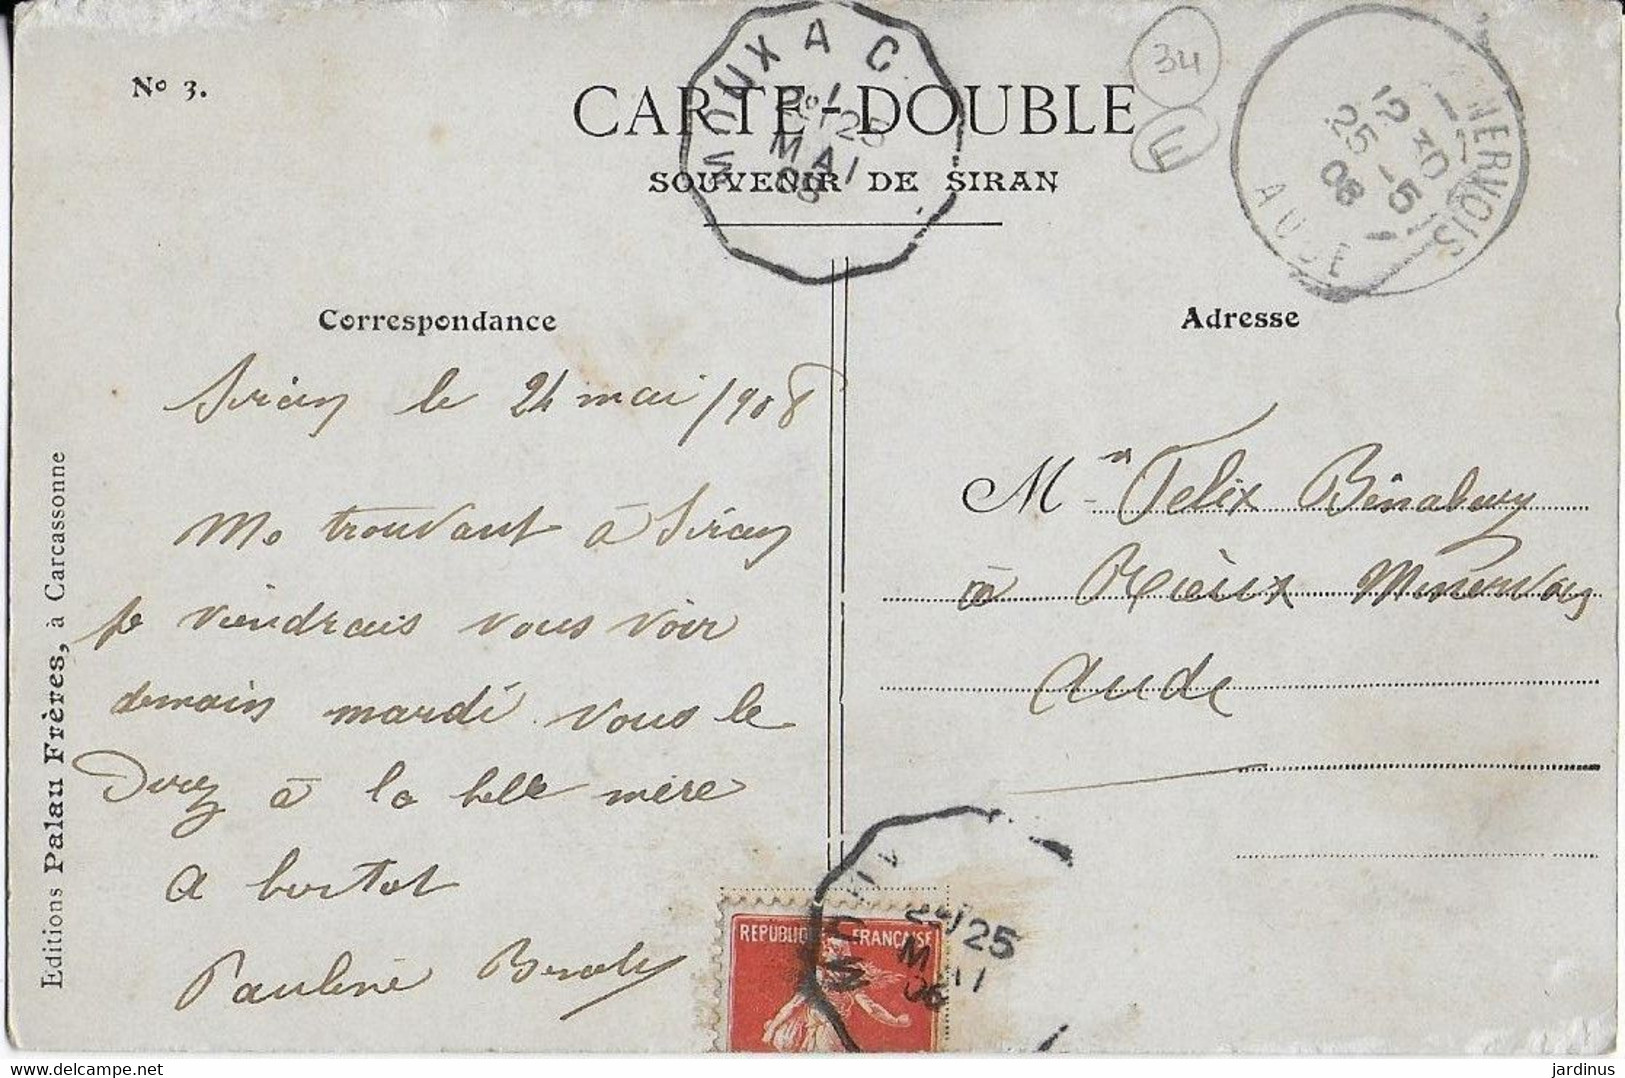 No 3.
CARTE-DOUBLE
SOUVENIR DE SIRAN
MOUX A C
25
MAI
08
34
E
MINERVOIS
12 30
25 -5
08
AUDE
Correspondance
Adresse
Siran le 24 mai 1908
Me trouvant à Siran
je viendrais vous voir
demain mardi vous le
Direz à la belle mère
A bientot
Pauline
Mr Felix
à Rieux Minervois
Aude
Editions Palau Frères, à Carcassonne
REPUBLIQUE FRANÇAISE
25
MAI
jardinus
delcampe.net